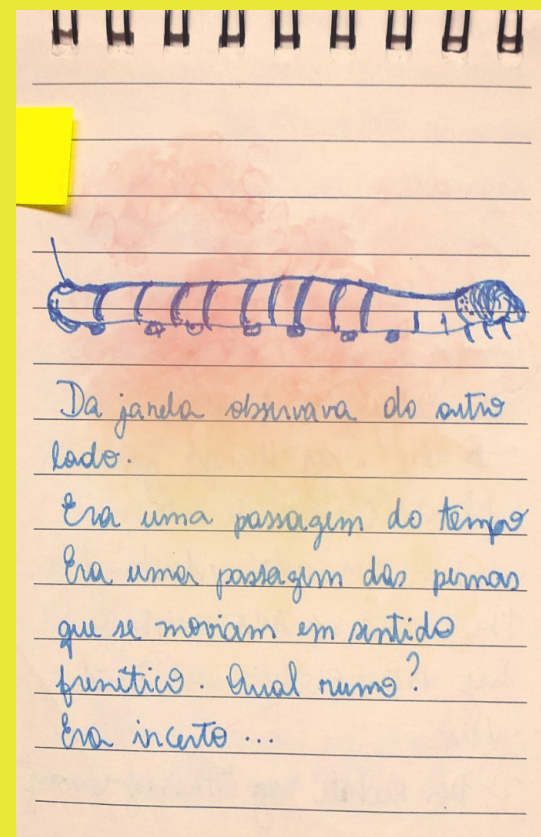 Da janela observava do outro
lado.
Era uma passagem do tempo
Era uma passagem das pernas
que se moviam em sentido
frenético. Qual rumo?
Era incerto ...